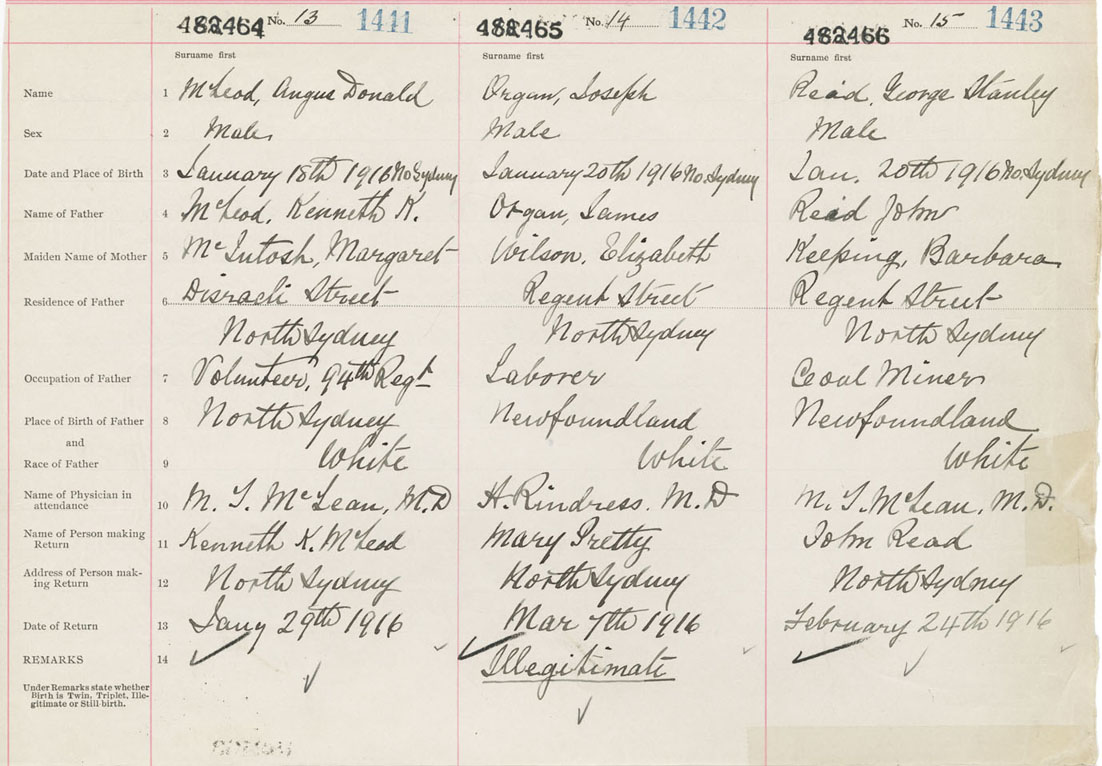 482464 No. 13 1411 482465 No. 14 1442 482466 No. 15 1443
Surname first Surname first Surname first
Name 1 McLeod, Angus Donald Organ, Joseph Read, George Stanley
Sex 2 Male Male Male
Date and Place of Birth 3 January 18th 1916 No Sydney January 20th 1916 No. Sydney Jan. 20th 1916 No Sydney
Name of Father 4 McLeod, Kenneth K. Organ, James Read John
Maiden Name of Mother 5 McIntosh, Margaret Wilson, Elizabeth Keeping, Barbara
Residence of Father 6 Disraeli Street Regent Street Regent Street
North Sydney North Sydney North Sydney
Occupation of Father 7 Volunteer, 94th Regt Laborer Coal Miner
Place of Birth of Father 8 North Sydney Newfoundland Newfoundland
and
Race of Father 9 White White White
Name of Physician in
attendance 10 M. T. McLean, M.D H. Rindress. M.D M. T. McLean, M.D.
Name of Person making
Return 11 Kenneth K. McLeod Mary Pretty John Read
Address of Person mak-
ing Return 12 North Sydney North Sydney North Sydney
Date of Return 13 Jany 29th 1916 Mar 7th 1916 February 24th 1916
REMARKS 14 Illegitimate
Under Remarks state whether
Birth is Twin, Triplet, Ille-
gitimate or Still-birth.